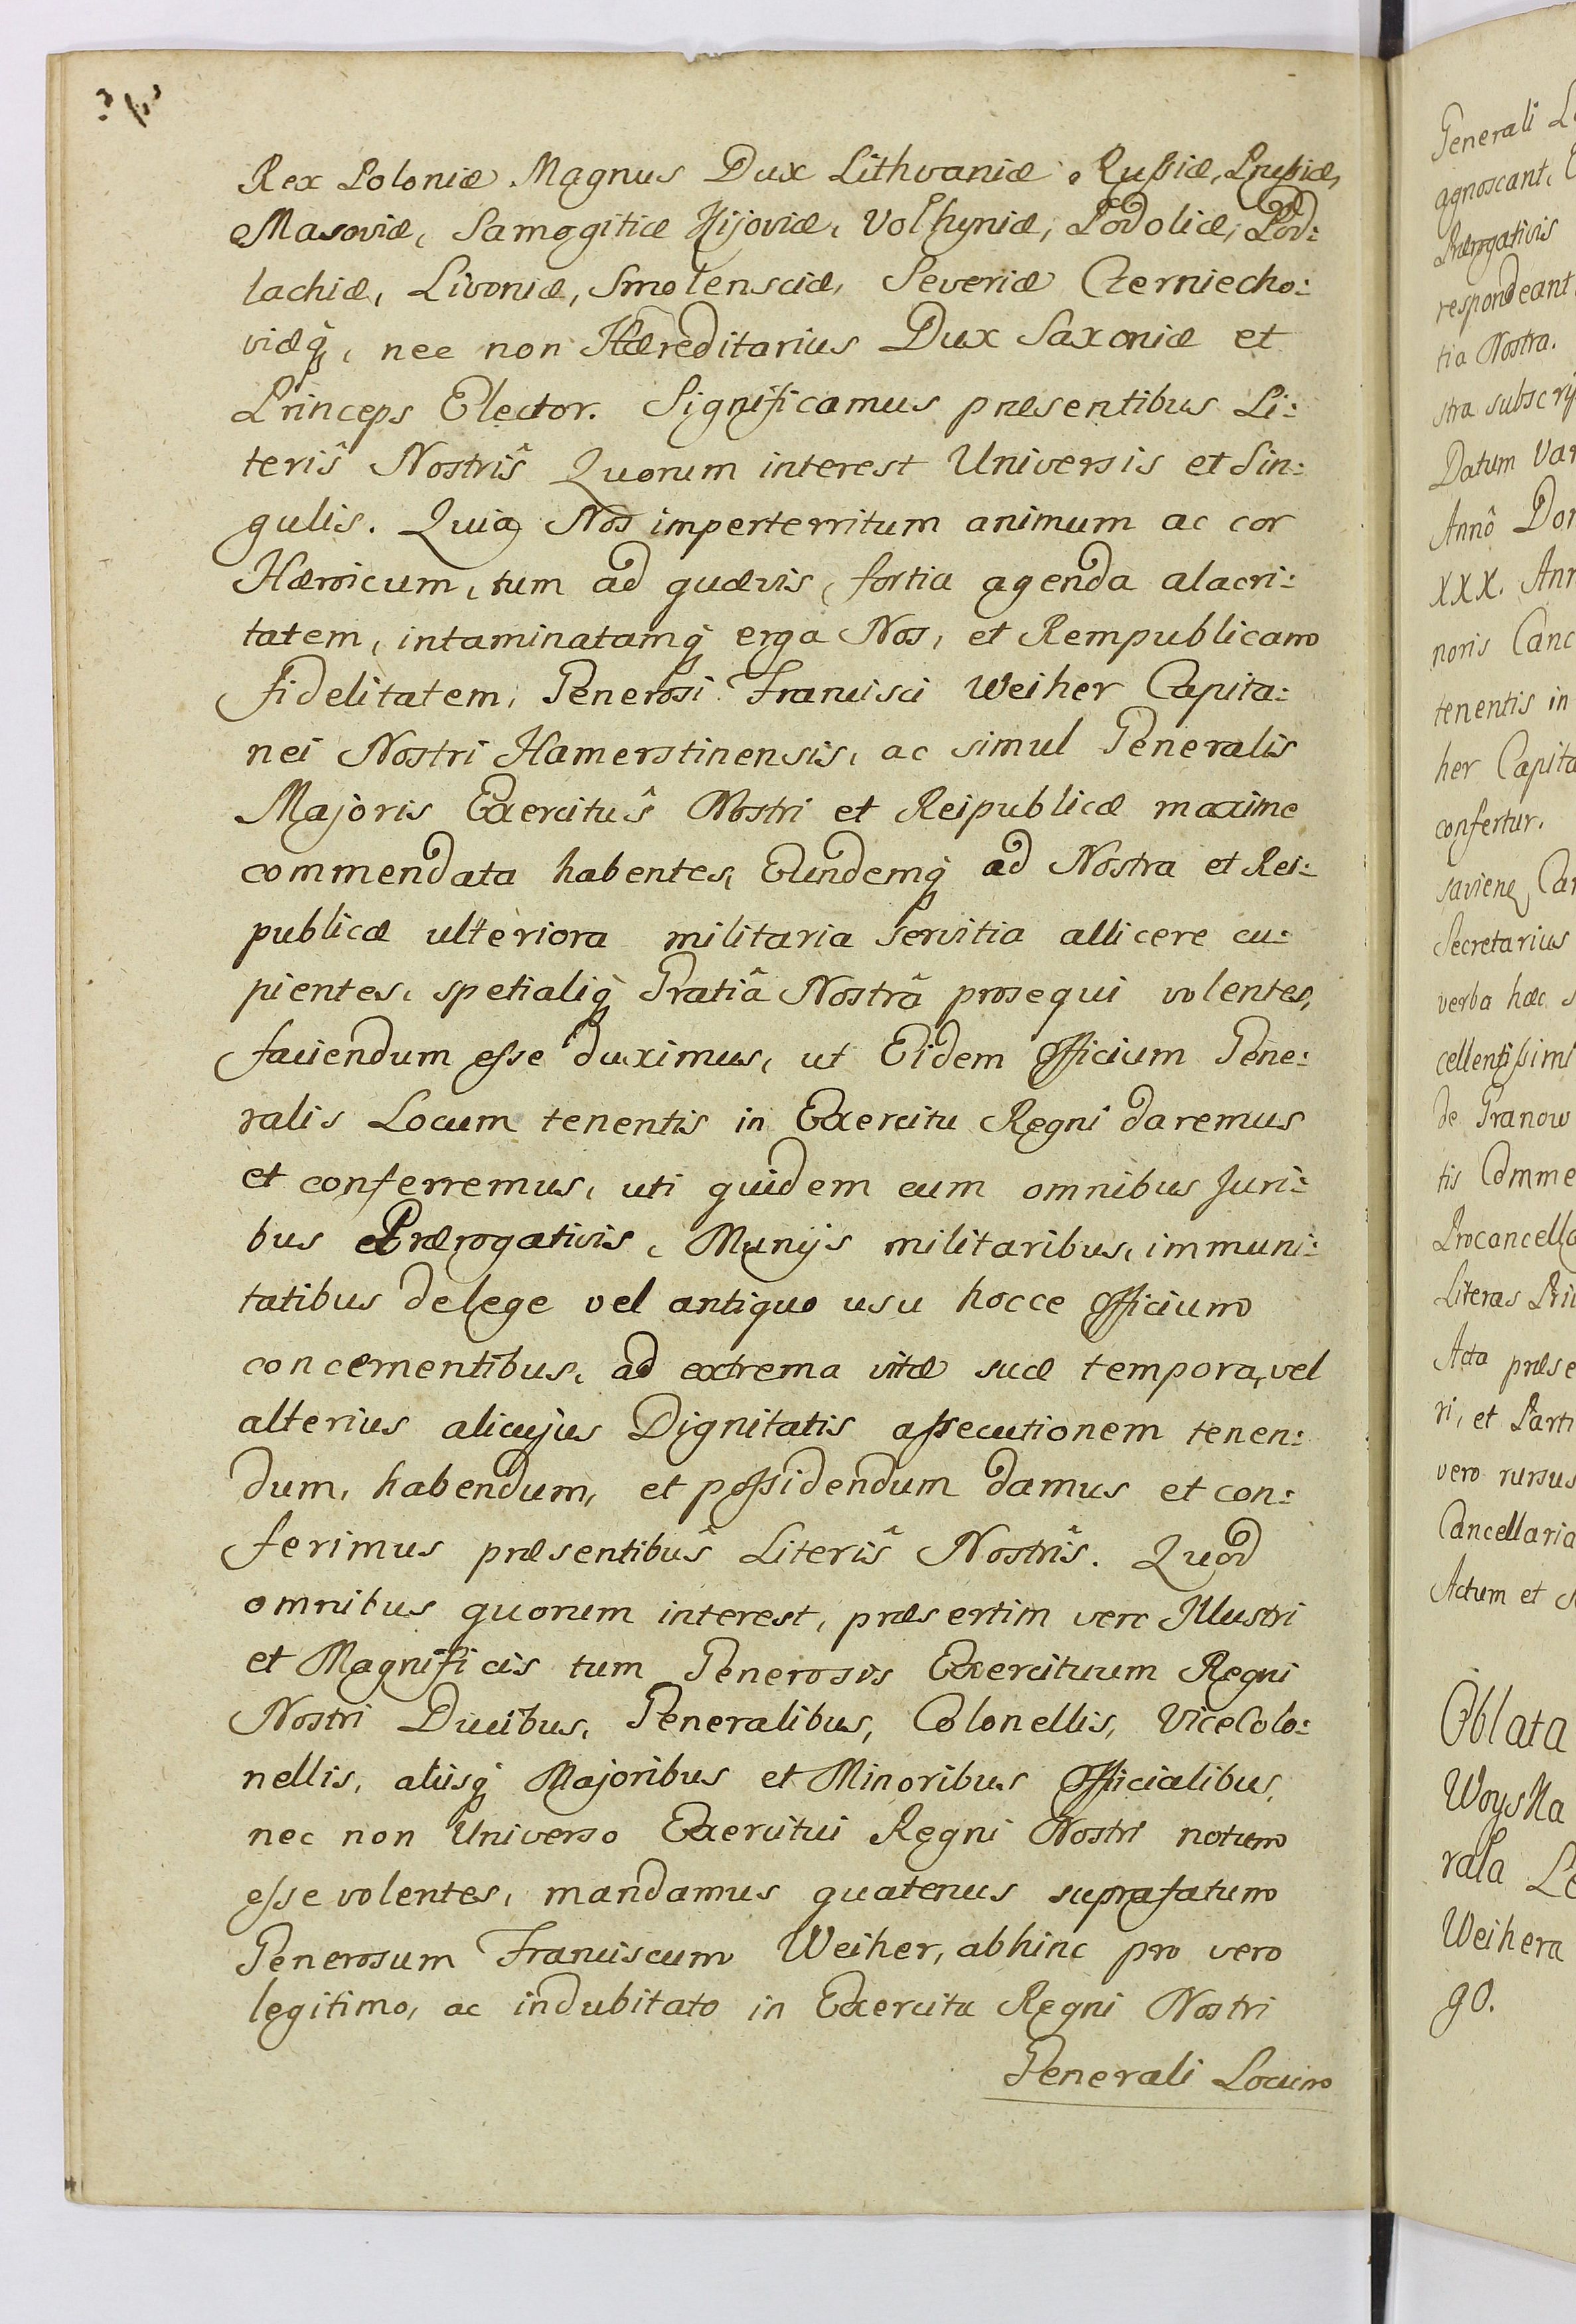 Rex Poloniæ Magnus Dux Lithvaniæ Rußiæ, Prußiæ,
Masoviæ, Samogitiæ Kijoviæ, Volhyniæ, Podoliæ, Pod:
lachiæ, Livoniæ, Smolensciæ, Severiæ Czerniecho:
viæq̃, nec non Hæreditarius Dux Saxoniæ et
Princeps Elector. Significamus præsentibus Li:
terîs Nostrîs Quorum interest Universis et Sin:
gulis. Quia Nos imperterritum animum ac cor
Hæroicum, tum ad quævis, fortia agenda alacri:
tatem, intaminatamq̃ erga Nos, et Rempublicam
fidelitatem, Generosi Francisci Weiher Capita:
nei Nostri Hamerstinensis, ac simul Generalis
Majoris Exercitûs Nostri et Reipublicæ maxime
commendata habentes, Eundemq̃ ad Nostra et Rei:
publicæ ulteriora militaria servitia allicere cu:
pientes, spetialiq̃ Gratiâ Nostrâ prosequi volentes,
faciendum esse duximus, ut Eidem Officium Gene:
ralis Locum tenentis in Exercitu Regni daremus
et conferremus, uti quidem cum omnibus Juri:
bus Prærogativis, Munijs militaribus, immuni:
tatibus de lege vel antiquo usu hocce Officium
concernentibus, ad extrema vitæ suæ tempora, vel
alterius alicujus Dignitatis assecutionem tenen:
dum, habendum, et possidendum damus et con:
ferimus præsentibûs Literîs Nostrîs. Quod
omnibus quorum interest, præsertim vero Illustri
et Magnificis tum Generosis Exercituum Regni
Nostri Ducibus, Generalibus, Colonellis, ViceColo:
nellis, aliisq̃ Majoribus et Minoribus Officialibus,
nec non Universo Exercitui Regni Nostri notum
esse volentes, mandamus quatenus suprafatum
Generosum Franciscum Weiher, abhinc pro vero
legitimo, ac indubitato in Exercitu Regni Nostri
Generali Locum
Generali
agnoscant,
Prærogativis
respondeant
tia Nostra.
stra
Datum
Annô
XXX.
noris
tenentis in
her
confertur.
Secretarius
verba hæc
de Granow
tis
Literas
Acta
ri, et
vero rursus
Actum et
Oblata
Woyska
rała
Weihera
go.